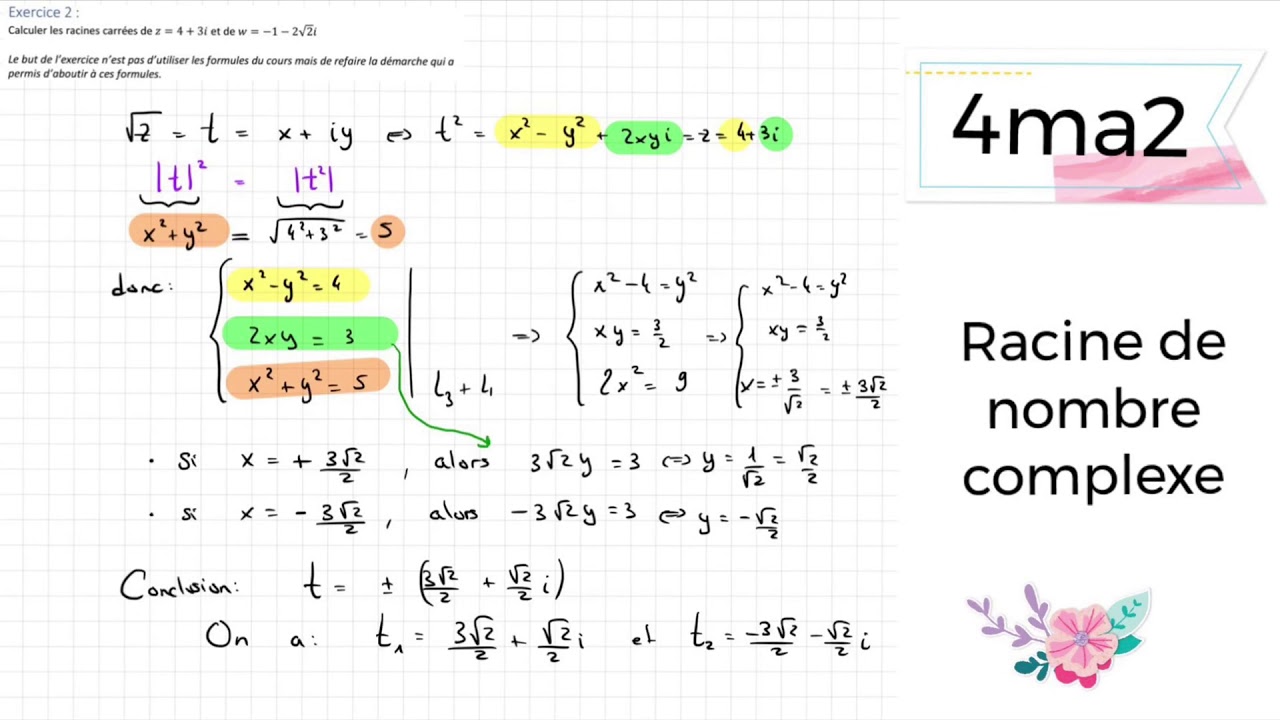 Exercice 2 :
Calculer les racines carrées de z = 4 + 3i et de w = −1 − 2√2i
Le but de l’exercice n’est pas d’utiliser les formules du cours mais de refaire la démarche qui a
permis d’aboutir à ces formules.
√z = t = x + iy ⇔ t² = x² − y² + 2xyi = z = 4+3i
|t|² = |t²|
x² + y² = √(4²+3²) = 5
donc : { x² − y² = 4 | ⇒ { x² − 4 = y² ⇒ { x² − 4 = y²
2xy = 3 | xy = 3/2 xy = 3/2
x² + y² = 5 | L₃ + L₁ 2x² = 9 x = ± 3/√2 = ± 3√2/2
• Si x = + 3√2/2 , alors 3√2y = 3 ⇔ y = 1/√2 = √2/2
• si x = − 3√2/2 , alors −3√2y = 3 ⇔ y = −√2/2
Conclusion : t = ± (3√2/2 + √2/2 i)
On a : t₁ = 3√2/2 + √2/2 i et t₂ = −3√2/2 − √2/2 i
4ma2
Racine de
nombre
complexe